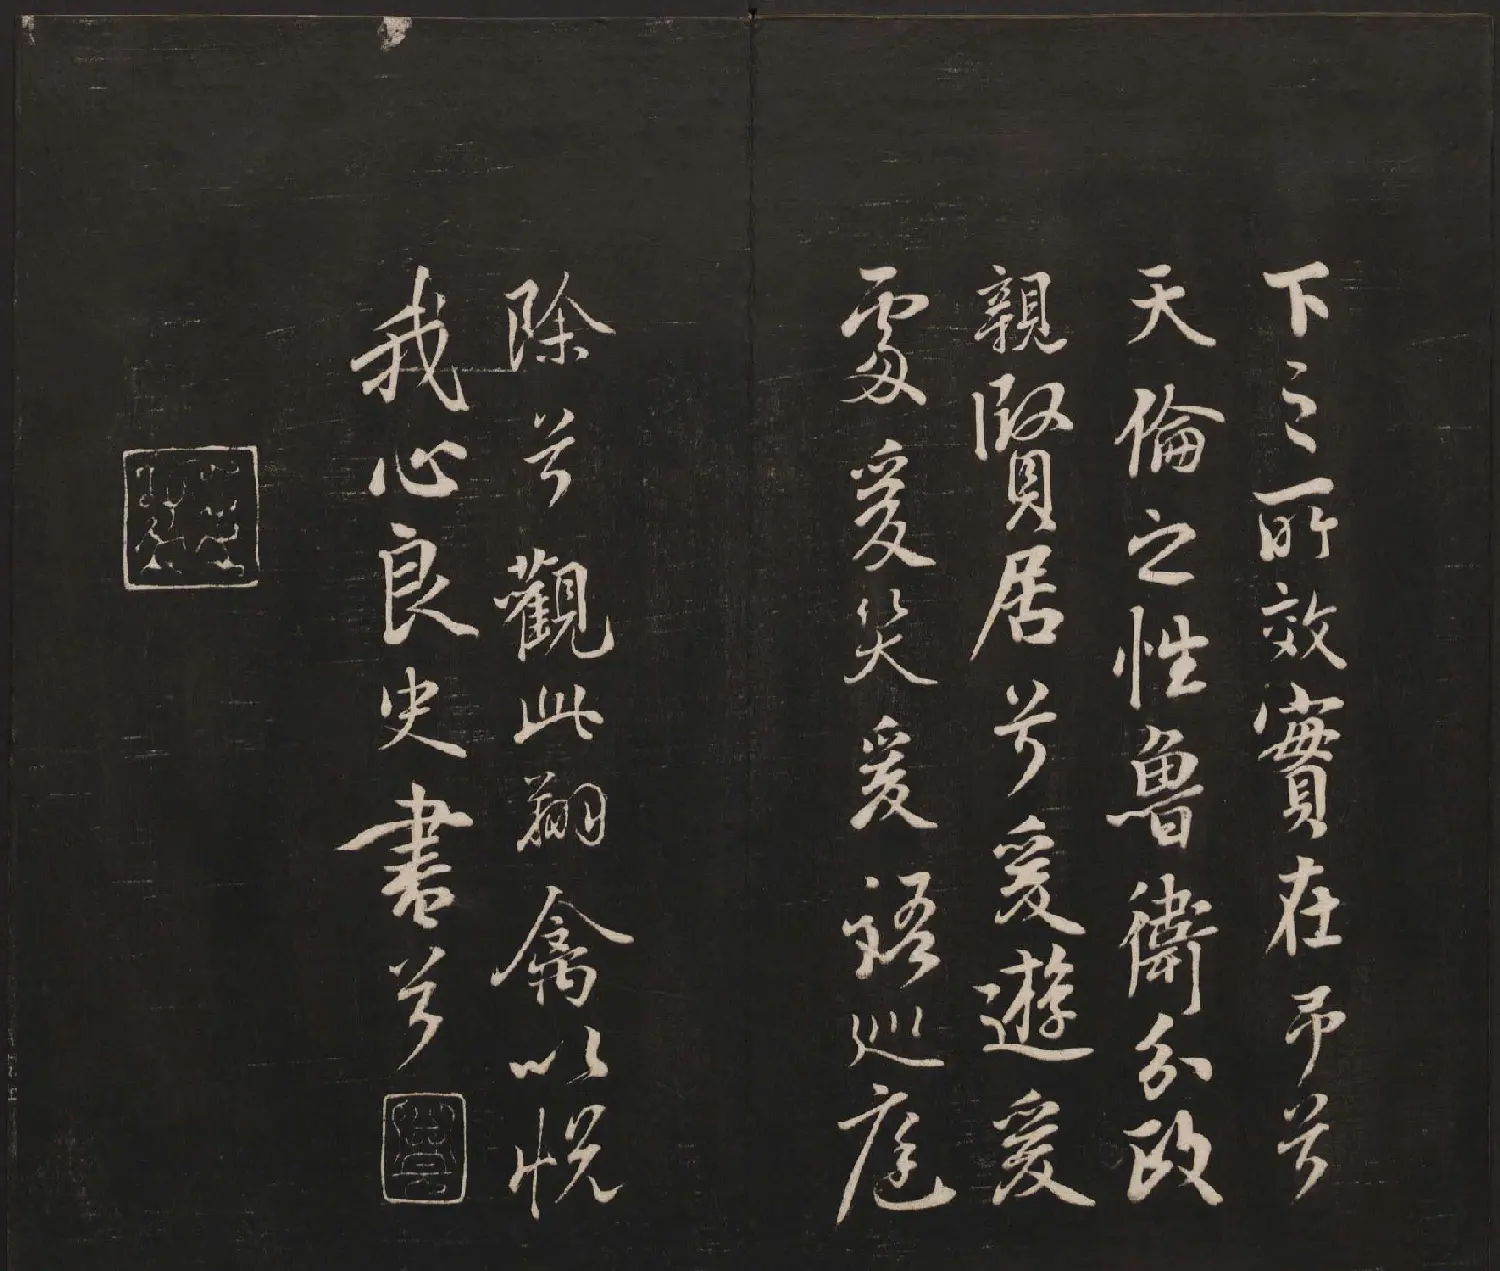 下之所效實在予兮
天倫之性魯衛分政
親賢居兮爰遊爰
處爰笑爰語巡庭
除兮觀此翔禽以悅
我心良史書兮